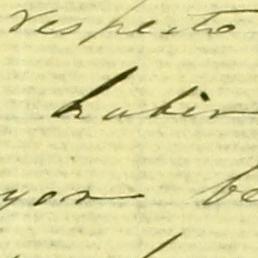 respecto
habin
yor be